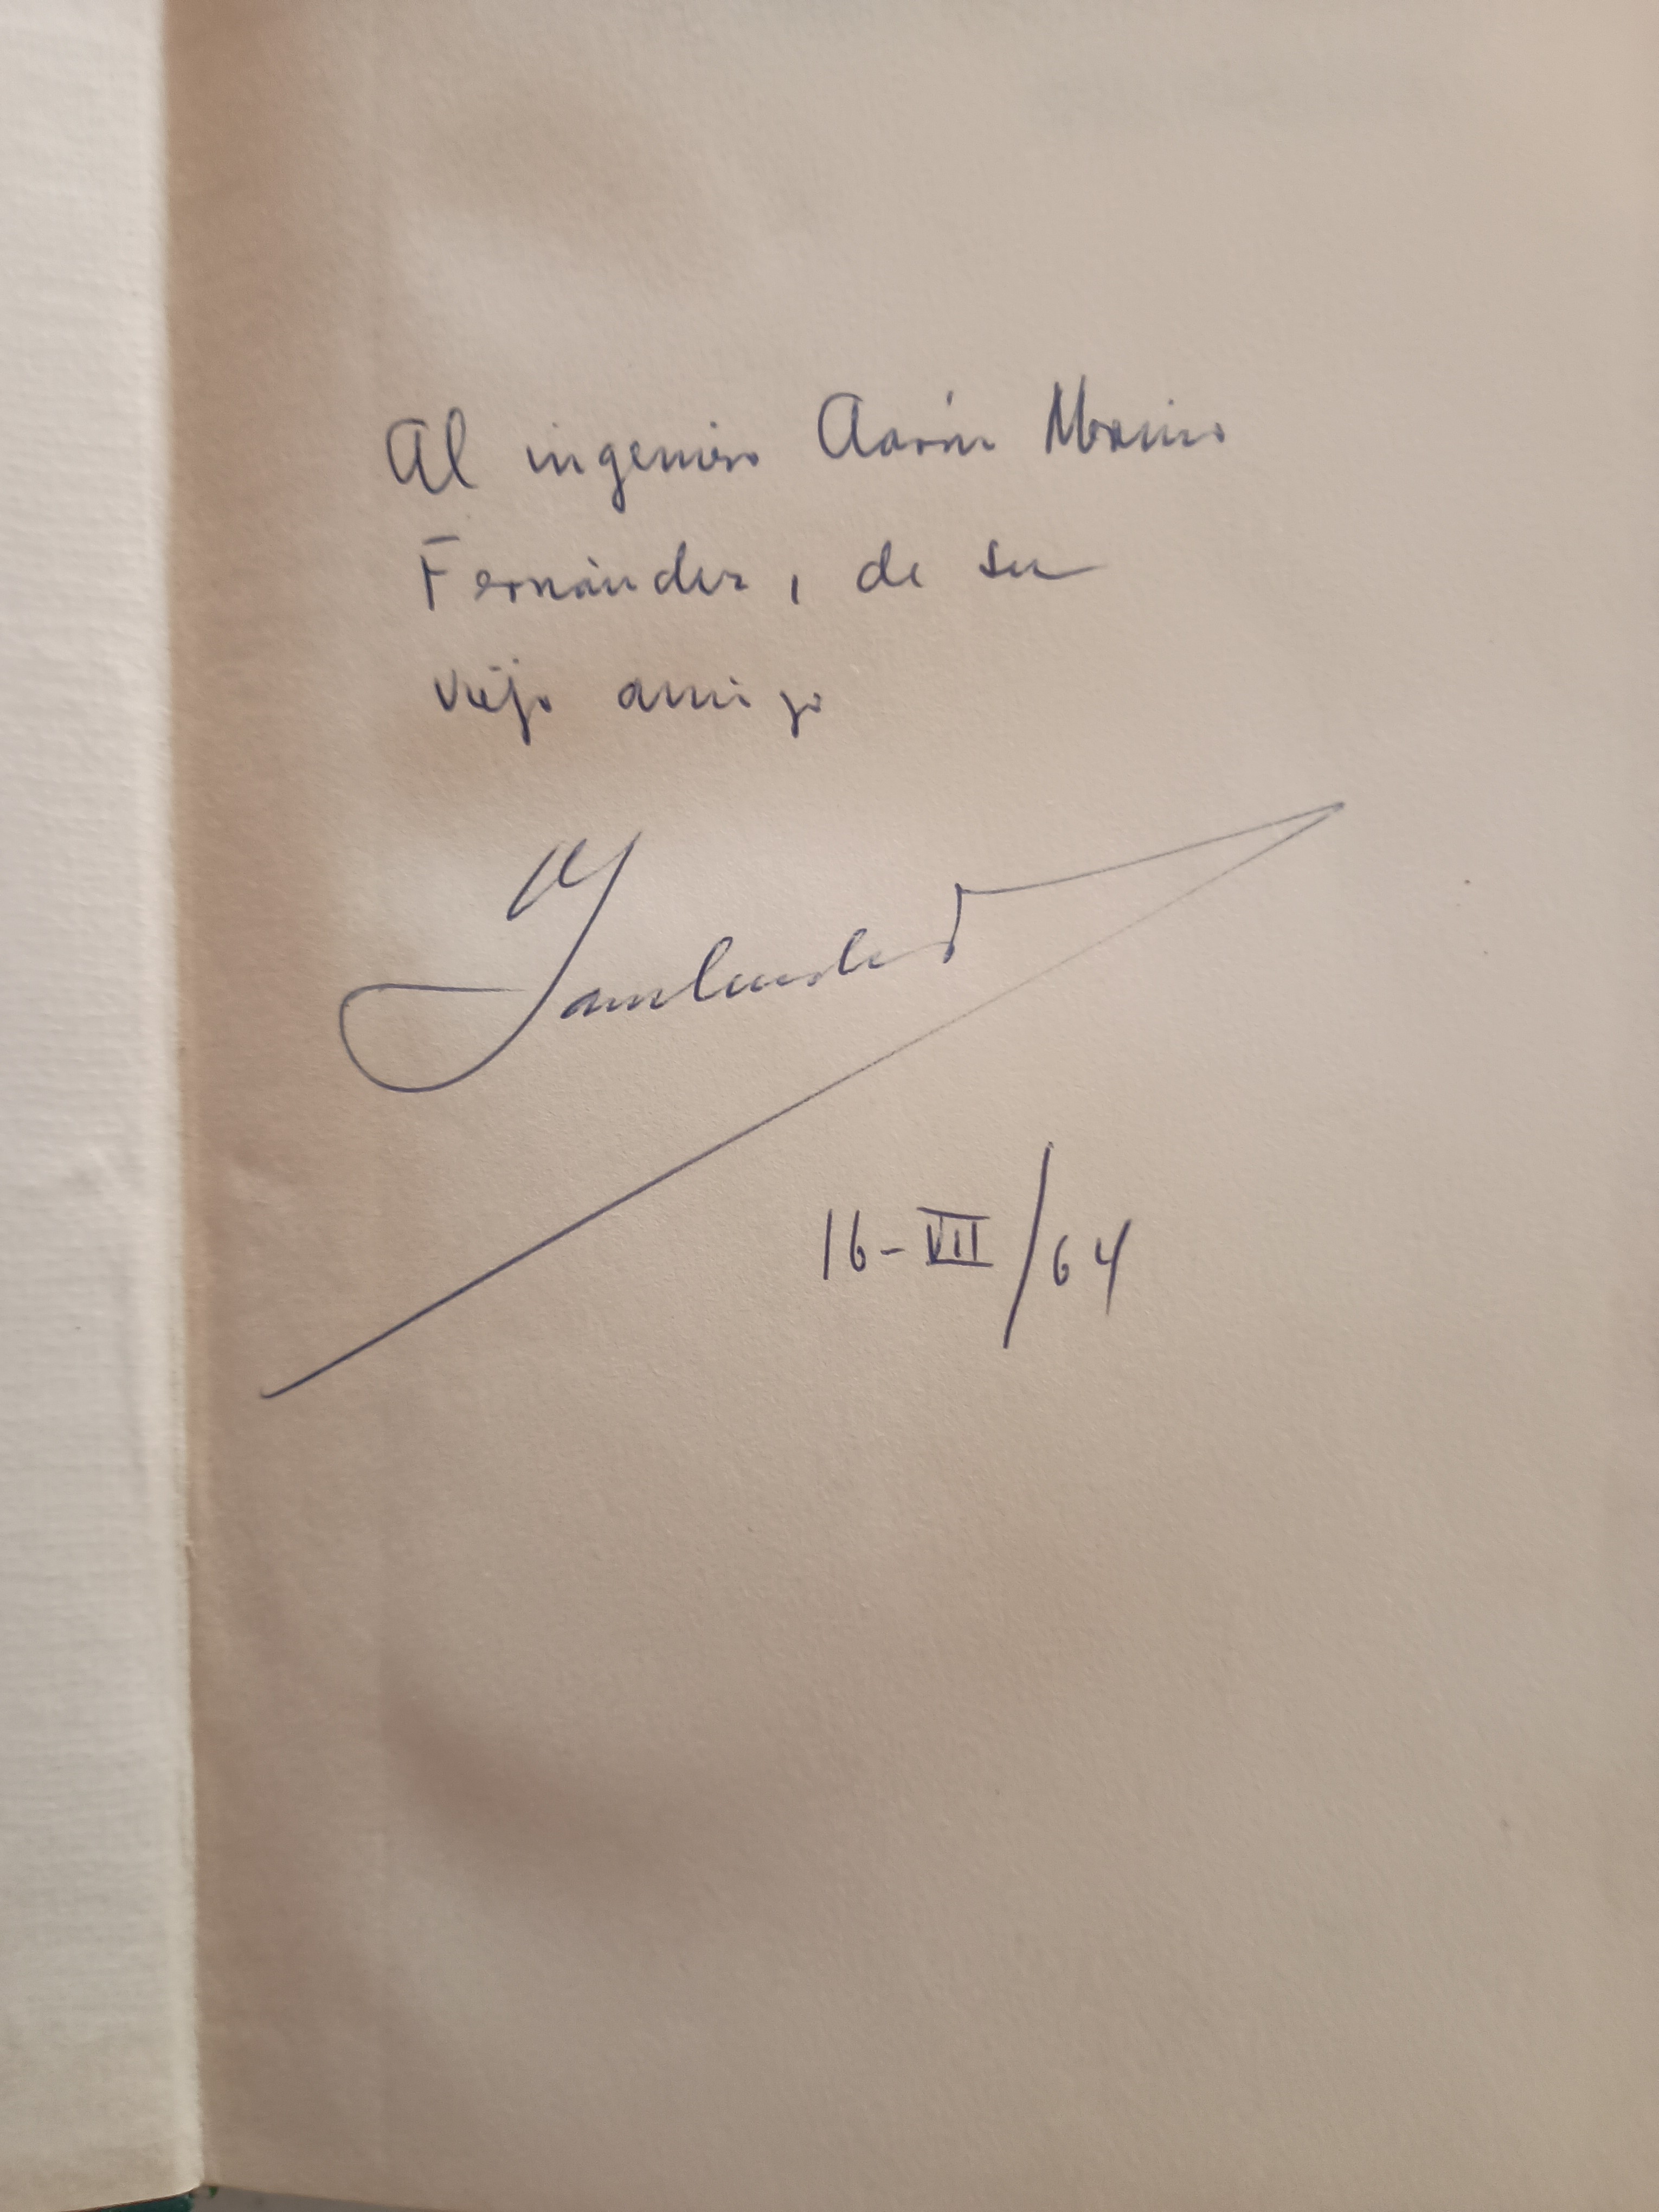 Al ingeniero Aarón Merino
Fernández, de su
viejo amigo
16-VII/64